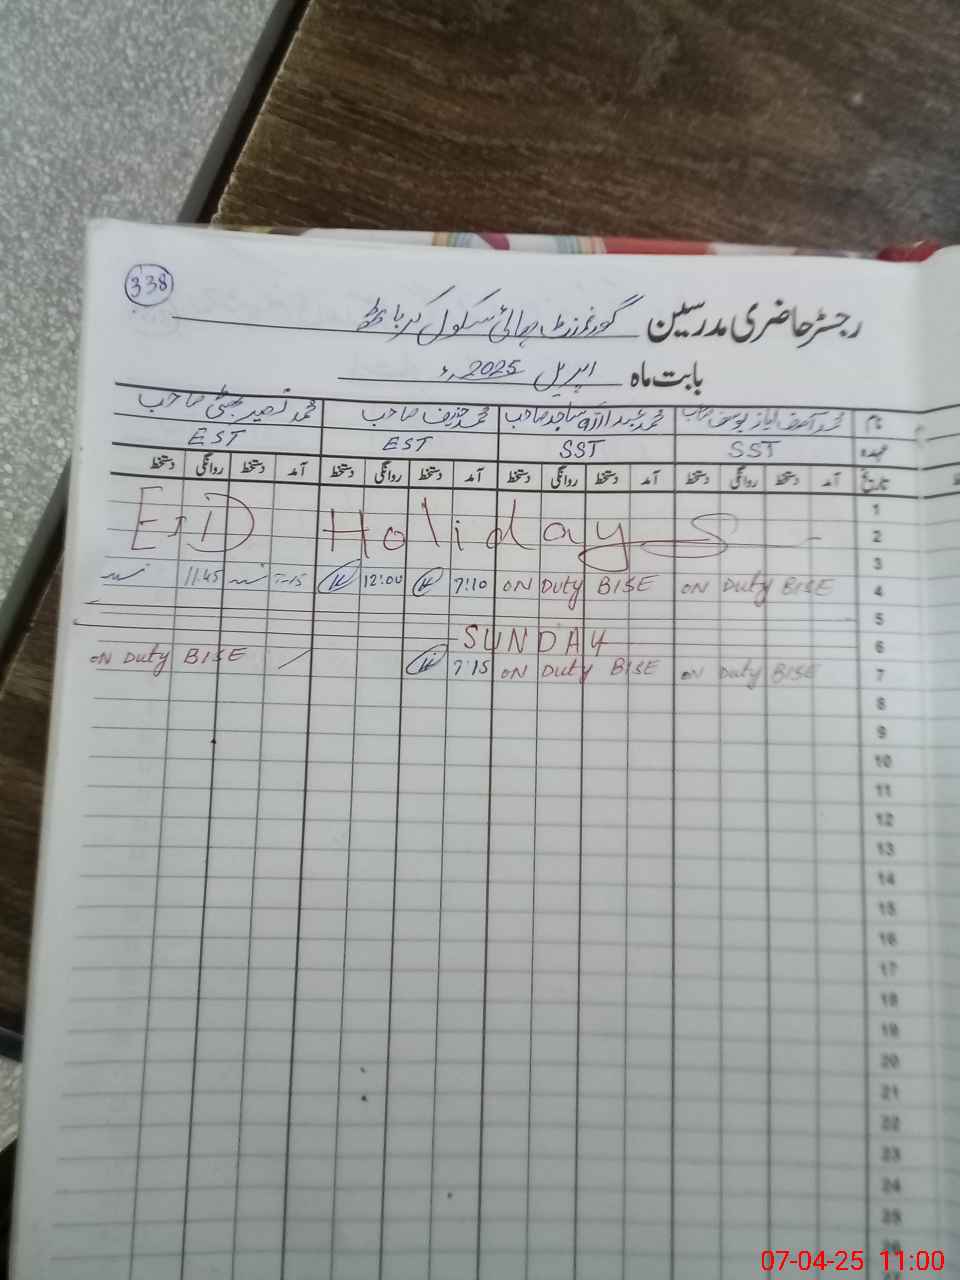 338
رجسٹر حاضری مدرسین گورنمنٹ ہائی سکول کرباٹھ
بابت ماہ اپریل 2025ء
نام محمد آصف ایاز یوسف صاحب محمد عبداللہ ساجد صاحب محمد حنیف صاحب محمد نصیر بھٹی صاحب
عہدہ SST SST EST EST
تاریخ آمد دستخط روانگی دستخط آمد دستخط روانگی دستخط آمد دستخط روانگی دستخط آمد دستخط روانگی دستخط
1
EID Holidays 2
3
11:45 7-15 12:00 7:10 ON Duty BISE ON Duty BISE 4
5
SUNDAY 6
ON Duty BISE 7:15 ON Duty BISE ON Duty BISE 7
8
9
10
11
12
13
14
15
16
17
18
19
20
21
22
23
24
25
26
07-04-25 11:00